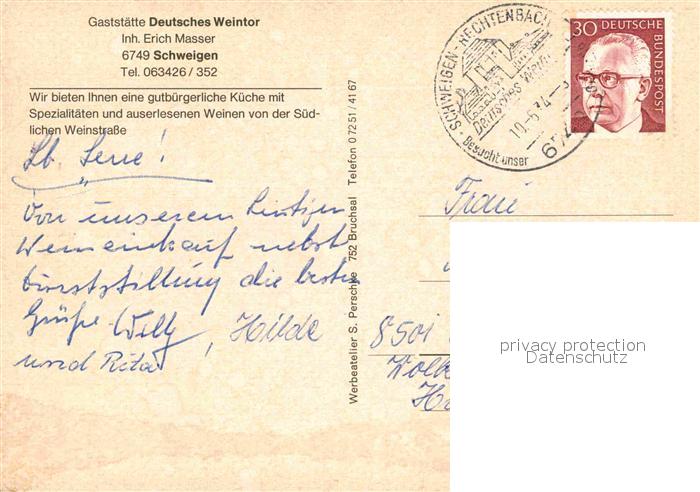 Gaststätte Deutsches Weintor
Inh. Erich Masser
6749 Schweigen
Tel. 063426 / 352
Wir bieten Ihnen eine gutbürgerliche Küche mit
Spezialitäten und auserlesenen Weinen von der Süd-
lichen Weinstraße
Lb. Lene!
Von unserem heutigen
Weineinkauf nebst
Durststillung die besten
Grüße Willy, Hilde
und Rita
Werbeatelier S. Perschke 752 Bruchsal Telefon 0 72 51 / 41 67
SCHWEIGEN-RECHTENBACH
Deutsches Weintor
10.-6.74
Besucht unser
30 DEUTSCHE
BUNDESPOST
Frau
8501
privacy protection
Datenschutz